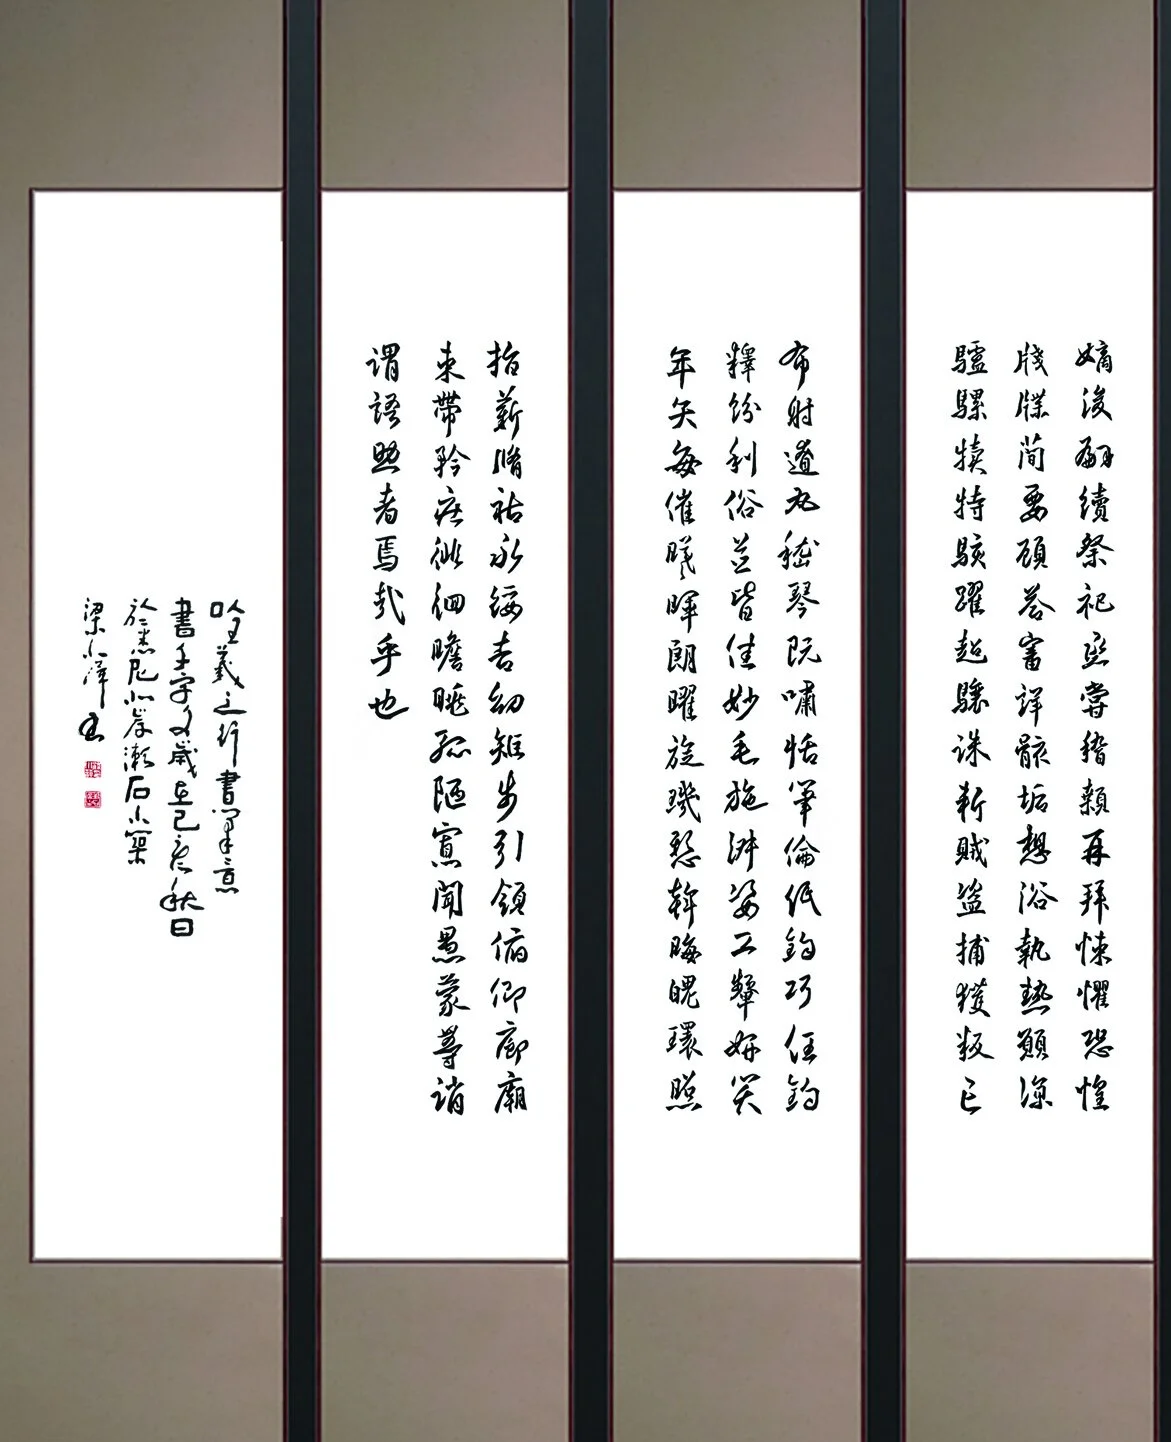 嫡後嗣續祭祀烝嘗稽顙再拜悚懼恐惶
牋牒簡要顧答審詳骸垢想浴執熱願涼
驢騾犢特駭躍超驤誅斬賊盜捕獲叛亡
布射遼丸嵇琴阮嘯恬筆倫紙鈞巧任鈞
釋紛利俗並皆佳妙毛施淑姿工顰妍笑
年矢每催曦暉朗曜旋璣懸斡晦魄環照
指薪脩祜永綏吉劭矩步引領俯仰廊廟
束帶矜莊徘徊瞻眺孤陋寡聞愚蒙等誚
謂語助者焉哉乎也
以王羲之行書筆意
書千字文歲在己亥秋日
於悉尼北岸漱石小築
梁小萍書